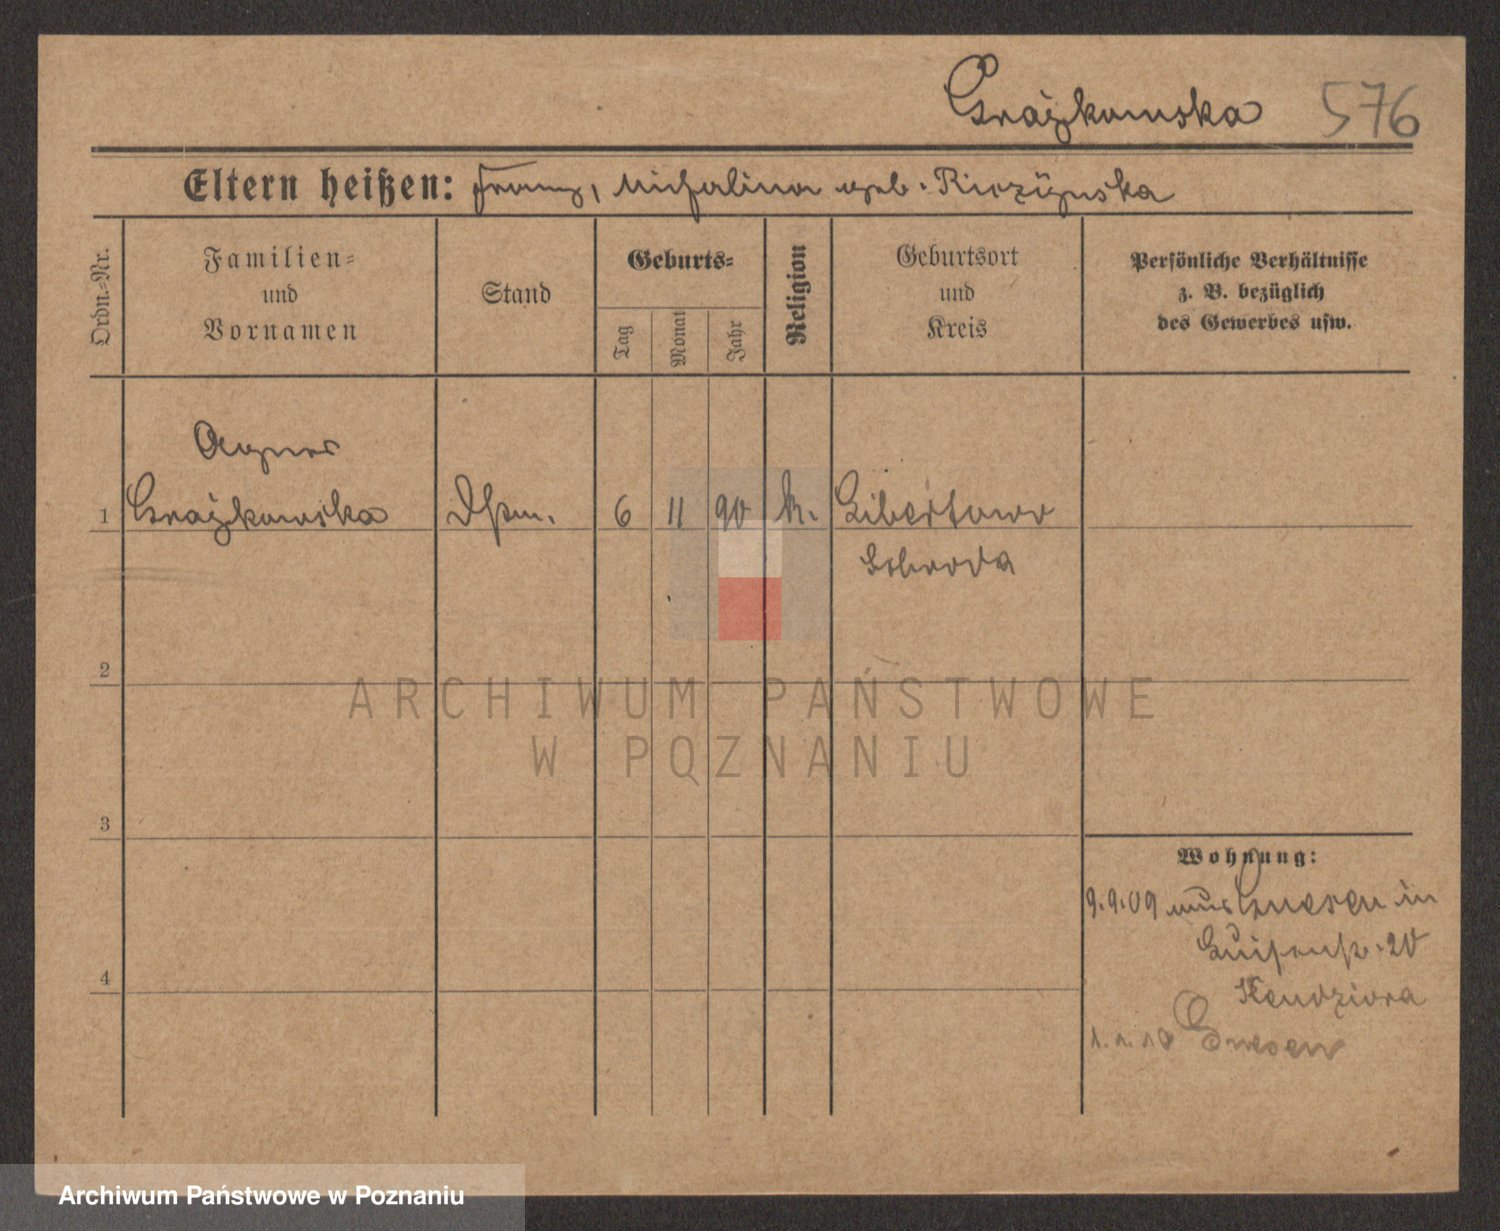 Grażkowska 576
Eltern heißen: Franz, Michalina geb. Ruczyńska
Ordn.-Nr.
Familien-
und
Vornamen
Stand
Geburts-
Tag
Monat
Jahr
Religion
Geburtsort
und
Kreis
Persönliche Verhältnisse
z. B. bezüglich
des Gewerbes usw.
Agnes
1 Grażkowska 6 11 90 k. Libertowo
Schroda
2
ARCHIWUM PAŃSTWOWE
W POZNANIU
3
Wohnung:
9.9.09 aus Gnesen in
Luisenstr. 20
Kendziora
4
1.1.10 Gnesen
Archiwum Państwowe w Poznaniu